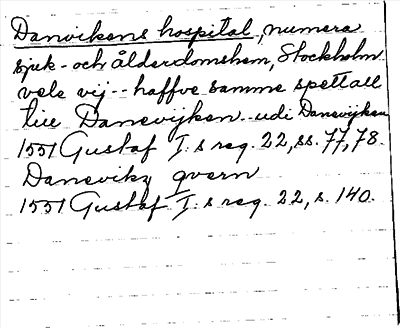 Danvikens hospital, numera
sjuk- och ålderdomshem, Stockholm
vele vij -- haffve samme spettall
till Danesvijken -- udi Danesvijken
1551 Gustaf I:s reg. 22, ss. 77, 78.
Danesvikz qvern
1551 Gustaf I:s reg. 22, s. 140.